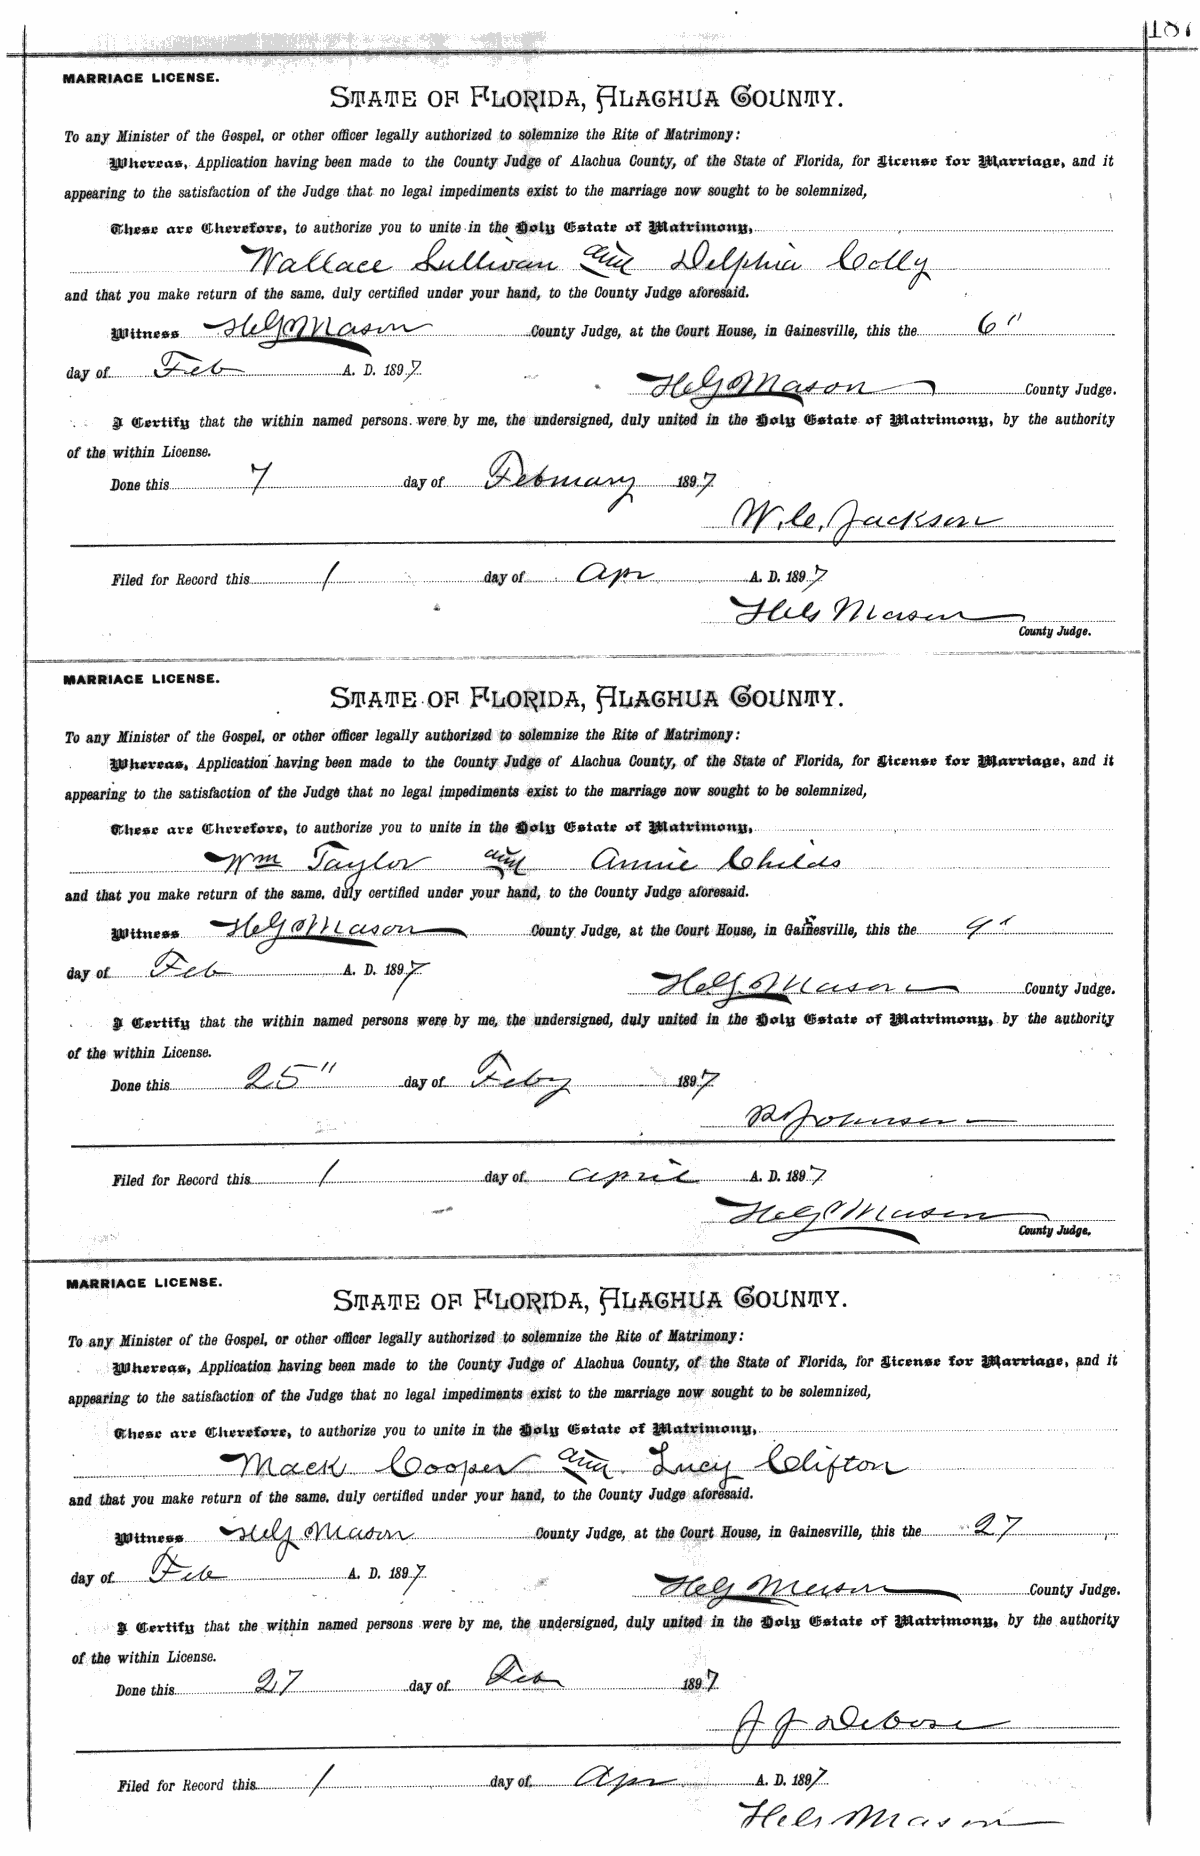 187
MARRIAGE LICENSE.
STATE OF FLORIDA, ALACHUA COUNTY.
To any Minister of the Gospel, or other officer legally authorized to solemnize the Rite of Matrimony:
Whereas, Application having been made to the County Judge of Alachua County, of the State of Florida, for License for Marriage, and it
appearing to the satisfaction of the Judge that no legal impediments exist to the marriage now sought to be solemnized,
These are Therefore, to authorize you to unite in the Holy Estate of Matrimony,
Wallace Sullivan and Delphia Colly
and that you make return of the same, duly certified under your hand, to the County Judge aforesaid.
Witness H G Mason County Judge, at the Court House, in Gainesville, this the 6"
day of Feb A. D. 1897
H G Mason County Judge.
I Certify that the within named persons were by me, the undersigned, duly united in the Holy Estate of Matrimony, by the authority
of the within License.
Done this 7 day of February 1897
W. C. Jackson
Filed for Record this 1 day of Apr A. D. 1897
H G Mason
County Judge.
MARRIAGE LICENSE.
STATE OF FLORIDA, ALACHUA COUNTY.
To any Minister of the Gospel, or other officer legally authorized to solemnize the Rite of Matrimony:
Whereas, Application having been made to the County Judge of Alachua County, of the State of Florida, for License for Marriage, and it
appearing to the satisfaction of the Judge that no legal impediments exist to the marriage now sought to be solemnized,
These are Therefore, to authorize you to unite in the Holy Estate of Matrimony,
Wm Taylor and Annie Childs
and that you make return of the same, duly certified under your hand, to the County Judge aforesaid.
Witness H G Mason County Judge, at the Court House, in Gainesville, this the 9"
day of Feb A. D. 1897
H G Mason County Judge.
I Certify that the within named persons were by me, the undersigned, duly united in the Holy Estate of Matrimony, by the authority
of the within License.
Done this 25" day of Feby 1897
Johnson
Filed for Record this 1 day of April A. D. 1897
H G Mason
County Judge.
MARRIAGE LICENSE.
STATE OF FLORIDA, ALACHUA COUNTY.
To any Minister of the Gospel, or other officer legally authorized to solemnize the Rite of Matrimony:
Whereas, Application having been made to the County Judge of Alachua County, of the State of Florida, for License for Marriage, and it
appearing to the satisfaction of the Judge that no legal impediments exist to the marriage now sought to be solemnized,
These are Therefore, to authorize you to unite in the Holy Estate of Matrimony,
Mack Cooper and Lucy Clifton
and that you make return of the same, duly certified under your hand, to the County Judge aforesaid.
Witness H G Mason County Judge, at the Court House, in Gainesville, this the 27
day of Feb A. D. 1897
H G Mason County Judge.
I Certify that the within named persons were by me, the undersigned, duly united in the Holy Estate of Matrimony, by the authority
of the within License.
Done this 27 day of Feb 1897
J J Debose
Filed for Record this 1 day of Apr A. D. 1897
H G Mason